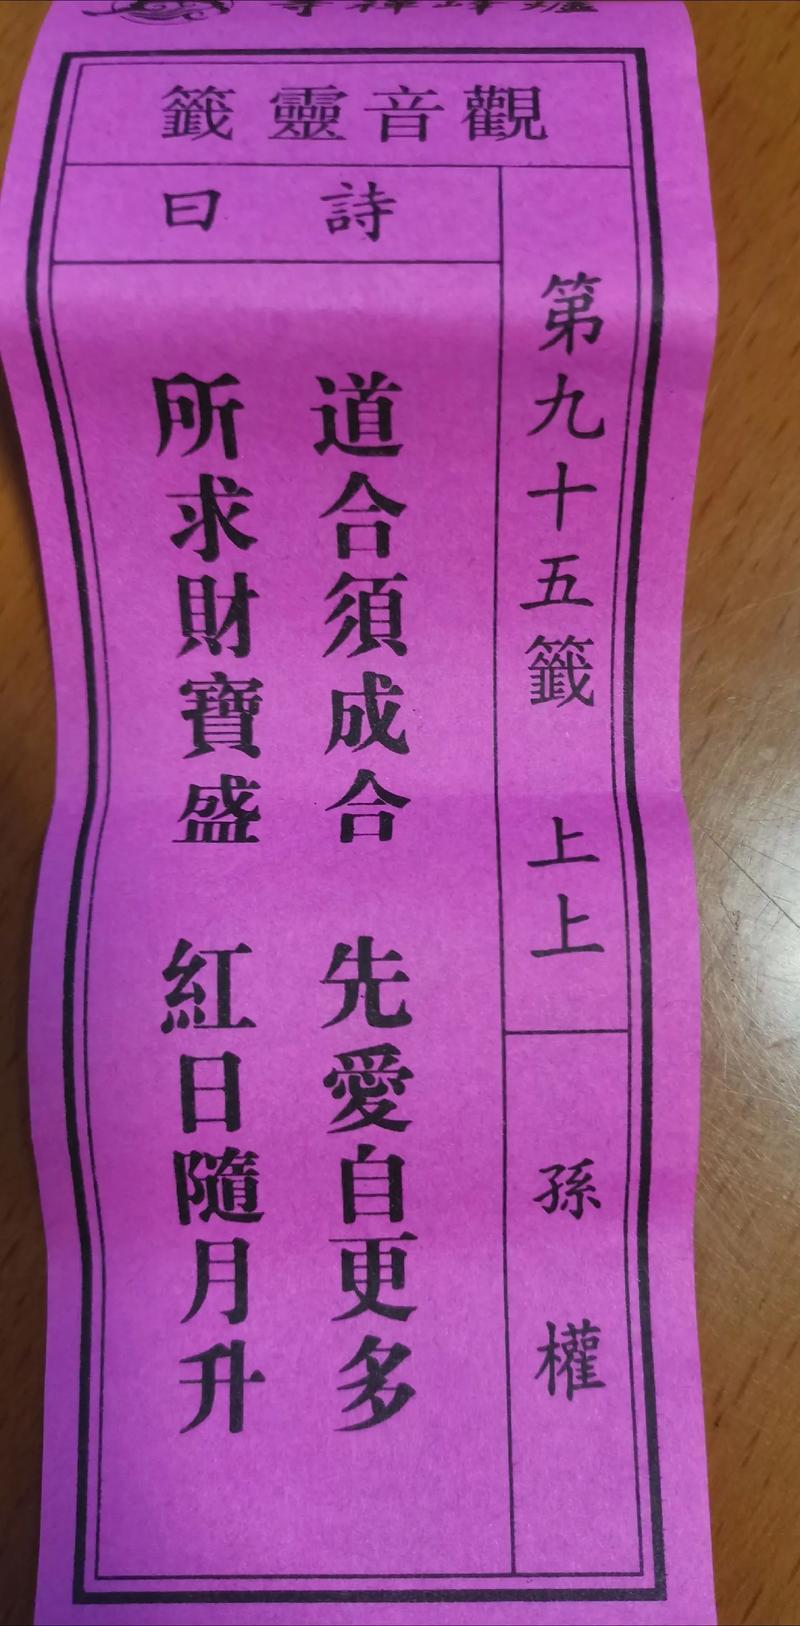 觀音靈籤
第九十五籤 上上
孫權
詩曰
道合須成合 先愛自更多
所求財寶盛 紅日隨月升